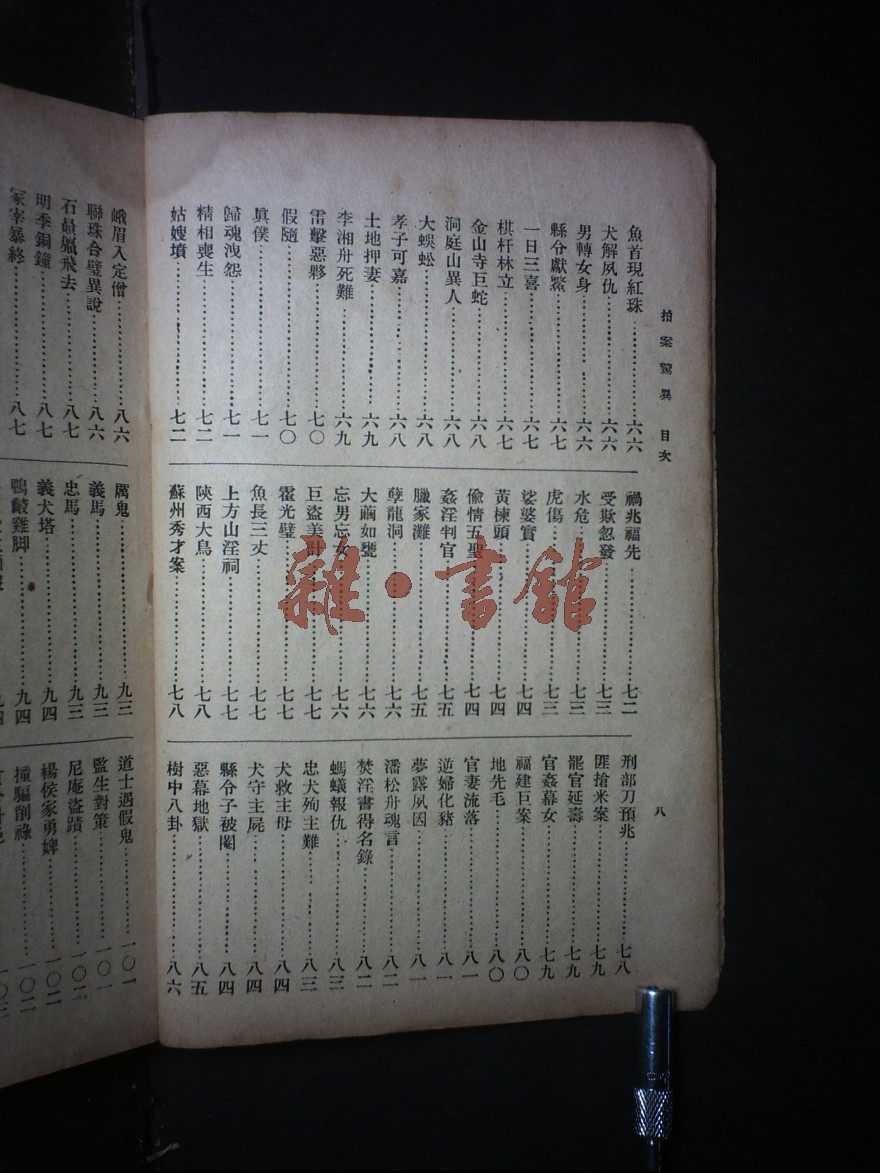 拍案驚異 目次
八
魚首現紅珠……六六
犬解夙仇……六六
男轉女身……六六
縣令獻鱉……六七
一日三喜……六七
棋杆林立……六七
金山寺巨蛇……六八
洞庭山異人……六八
大蜈蚣……六八
孝子可嘉……六八
土地押妻……六九
李湘舟死難……六九
雷擊惡夥……七〇
假隨……七〇
眞僕……七一
歸魂洩怨……七一
精相喪生……七二
姑嫂墳……七二
禍兆福先……七二
受欺忽發……七三
水危……七三
虎傷……七三
娑婆寳……七四
黃楝頭……七四
偸情五聖……七四
姦淫判官……七五
臘家灘……七五
孽龍洞……七六
大繭如甕……七六
忘男忘女……七六
巨盜美計……七七
霍光璧……七七
魚長三丈……七七
上方山淫祠……七七
陝西大鳥……七八
蘇州秀才案……七八
刑部刀預兆……七八
匪搶米案……七九
罷官延壽……七九
官姦幕女……七九
福建巨案……八〇
地先毛……八〇
官妻流落……八一
逆婦化豬……八一
夢露夙因……八一
潘松舟魂言……八二
焚淫書得名錄……八二
螞蟻報仇……八三
忠犬殉主難……八三
犬救主母……八四
犬守主屍……八四
縣令子被閹……八四
惡幕地獄……八五
樹中八卦……八六
峨眉入定僧……八六
聯珠合璧異說……八六
石贔屭飛去……八七
明季銅鐘……八七
冢宰暴終……八七
厲鬼……九三
義馬……九三
忠馬……九三
義犬塔……九四
鴨鬭雞脚……九四
道士遇假鬼……一〇一
監生對策……一〇一
尼庵盜蹟……一〇二
楊侯家勇婢……一〇二
撞騙削祿……一〇二
雜·書舘